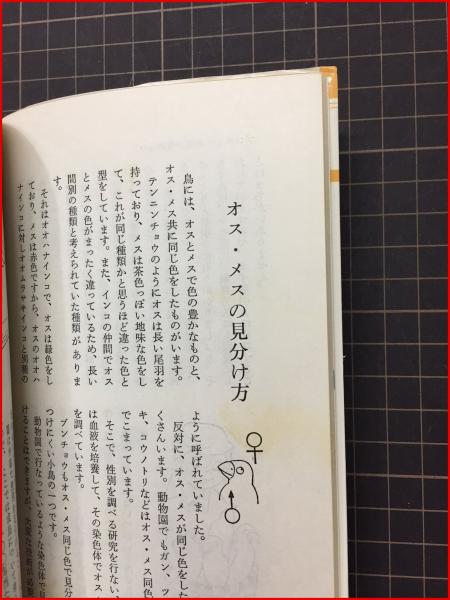 オス・メスの見分け方
鳥には、オスとメスで色の豊かなものと、
オス・メス共に同じ色をしたものがいます。
テンニンチョウのようにオスは長い尾羽を
持っており、メスは茶色っぽい地味な色をし
て、これが同じ種類かと思うほど違った色と
型をしています。また、インコの仲間でオス
とメスの色がまったく違っているため、長い
間別の種類と考えられていた種類がありま
す。
それはオオハナインコで、オスは緑色をし
ており、メスは赤色ですから、オスのオオハ
ナインコに対しオオムラサキインコと別種の
ように呼ばれていました。
反対に、オス・メスが同じ色をした
くさんいます。動物園でもガン、ツ
キ、コウノトリなどはオス・メス同色
でこまっています。
そこで、性別を調べる研究を行ない、
は血液を培養して、その染色体でオス
を調べています。
ブンチョウもオス・メス同じ色で見分
つけにくい小鳥の一つです。
動物園で行なっているような染色体で
けることはできますが、大変な